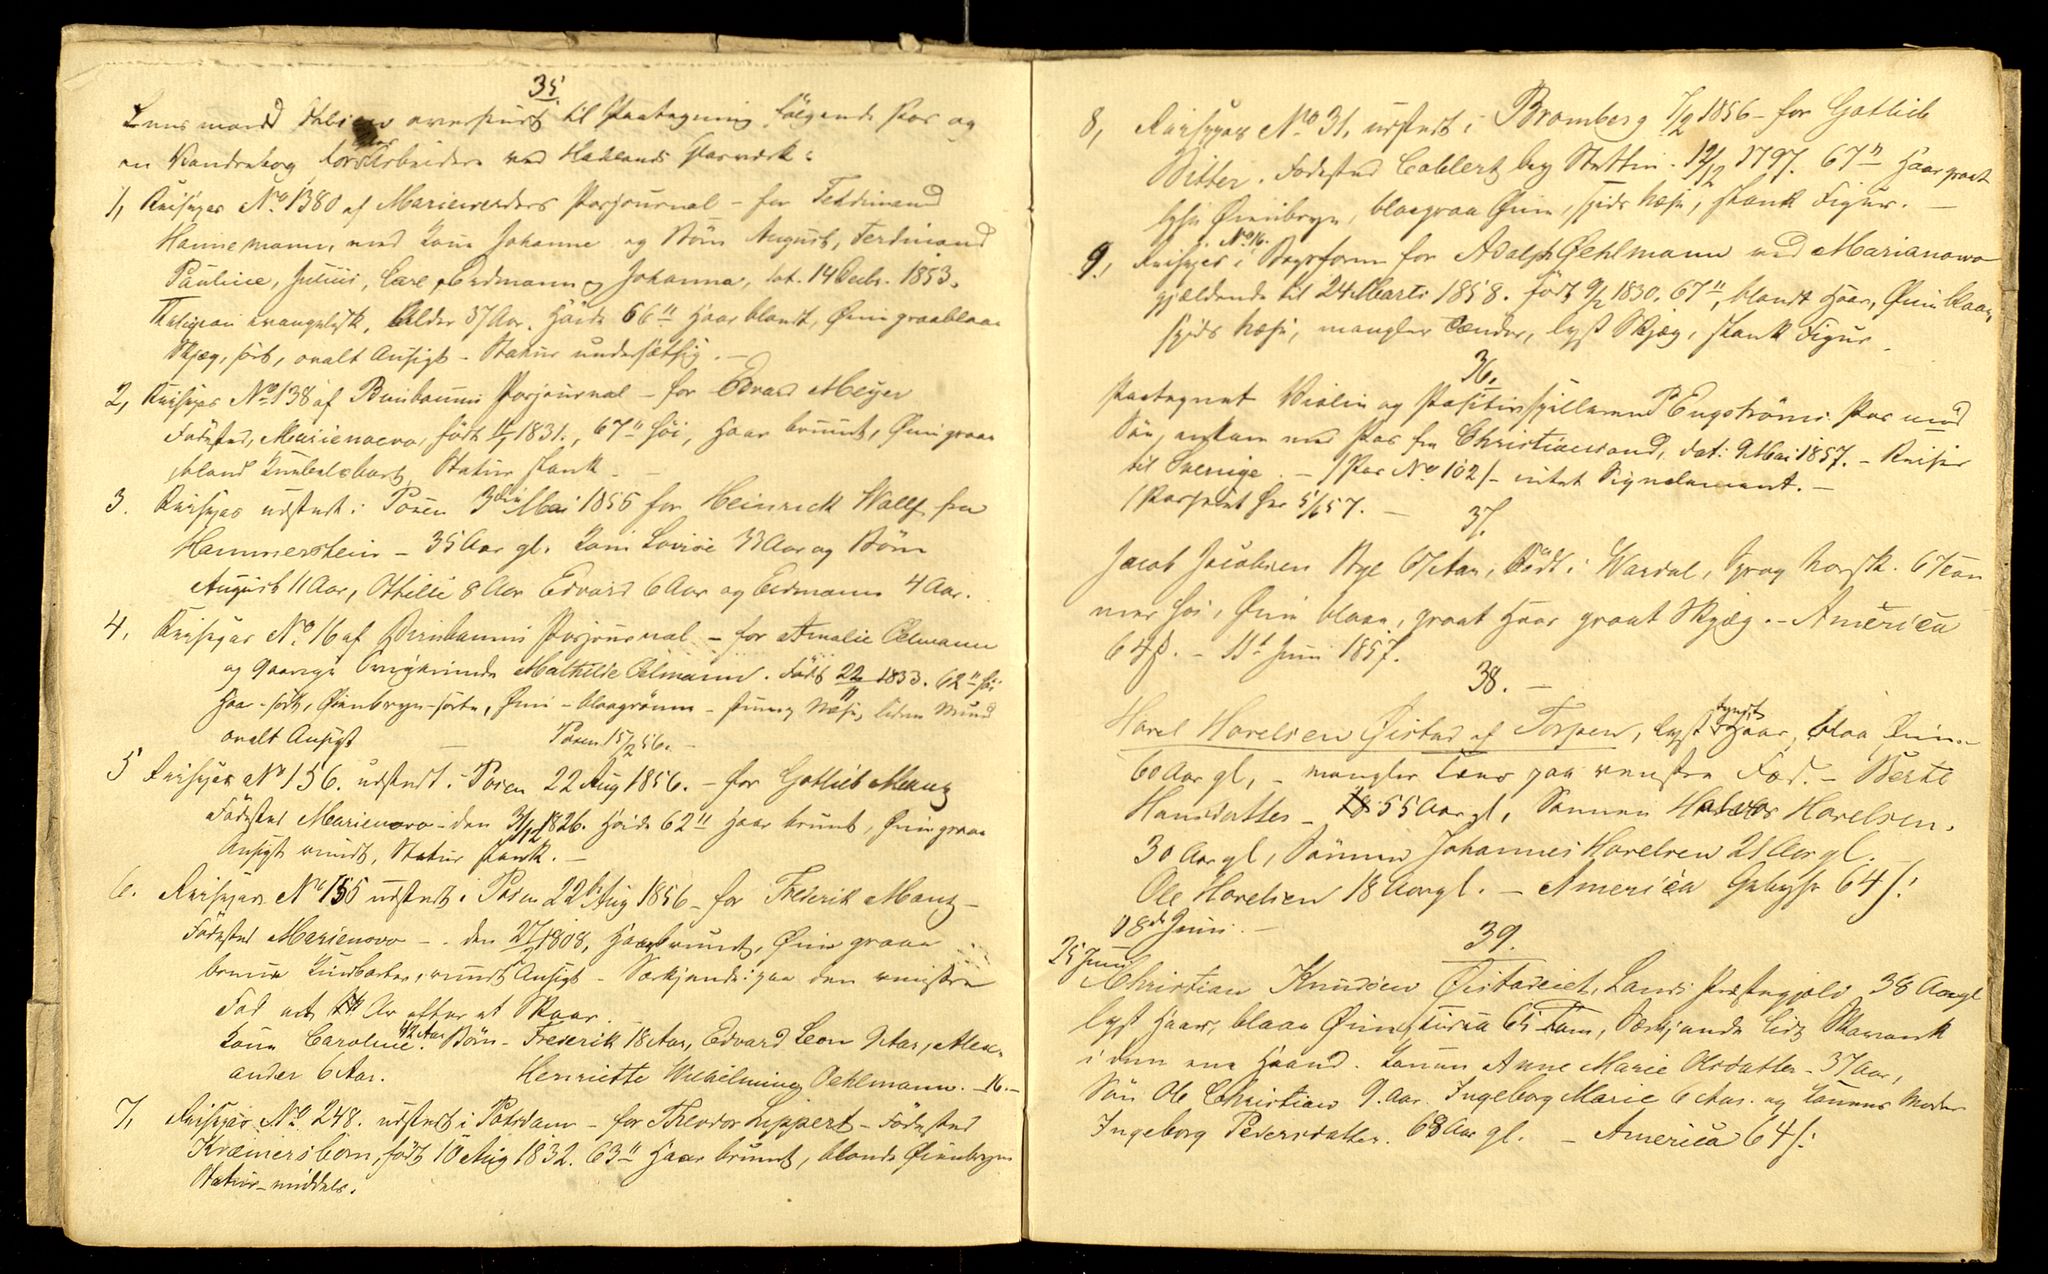 35.
Lensmand oversendt til Paategning følgende Pas og
en Vandrebog for Arbeidere ved Hadelands Glasværk:
1, Reisepas No 1380 af Marienverders Pasjournal - for Ferdinand
Hannemann, med Kone Johanne og Børn August, Ferdinand
Pauline, Julius, Carl, Erdmann og Johanna, dat. 14 Decbr. 1853.
Religion evangelisk, Alder 37 Aar, Høide 66" Haar blondt, Øine graablaae
Skjæg, sort, ovalt Ansigt - Statur undersætsig. -
2, Reisepas No 138 af Birnbaums Pasjournal - for Edvard Meyer
Fødested, Marienowo, født 1831., 67" høi, Haar bruunt, Øine graae
blond Statur slank -
3. Reisepas udstedt i Posen 3die Mai 1855 for Heinrich Wolff fra
Hammerstein - 35 Aar gl. Kone Lovise 33 Aar og Børn
August 11 Aar, Othilie 8 Aar Edvard 6 Aar og Erdmann 4 Aar.
4, Reisepas No 16 af Birnbaums Pasjournal - for Amalie Oelmann
og Mathilde Oelmann. Født 22/11 1833. 62" høi
Haar - sort, Øienbryn - sorte, Øine - blaagrønne - Næse, liden Mund
ovalt Ansigt - Posen 15/2 56. -
5 Reisepas No 156. udstedt i Posen 22 Aug 1856. - for Gottlieb Manz
Fødested Marienowo - den 3/12 1826. Høide 62" Haar bruunt, Øine graae
Ansigt rundt, Statur slank. -
6. Reisepas No 155 udstedt i Posen 22de Aug 1856 - for Frederik Manz -
Fødested Marienowo - den 27/2 1808, Haar bruunt, Øine graae
brune rundt Ansigt - Særkjende: paa den venstre
Fod et Ar efter et Saar.
Kone Caroline 42 Aar. Børn - Frederik 18 Aar, Edvard Leon 9 Aar, Alex-
ander 6 Aar. Henriette Wilhelmine Oehlmann. - 16. -
7, Reisepas No 248. udstedt i Potsdam - for Theodor Lippert - Fødested
Kræmersborn, født 10 Aug 1832. 63" Haar bruunt, blonde Øienbryn
Statur - middels.
8, Reisepas No 31, udstedt i Bromberg 1/2 1856 - for Gotlieb
Ditter. Fødested Cablertz bey Stettin - 12/12 1797. 67" Haar graat
lyse Øienbryn, blaagraa Øine, spids Næse, slank Figur. -
9, Reisepas No 16. i Bogform for Adolph Oehlmann ved Marianowo
gjældende til 24 Marts 1858. født 9/2 1830, 67", blondt Haar, Øine blaae,
spids Næse, mangler Tænder, lyst Skjæg, slank Figur.
36.
Paategnet Violin og Positivspilleren P Engstrøms Pas med
Søn, ankom med Pas fra Christianssand, dat. 9 Mai 1857. - Reiser
til Sverige. - /Pas No 102/ - intet Signalement. -
/Passeret her 5/6 57. -
37.
Jacob Jacobsen Bye 67 Aar, Født i Vardal, Sprog Norsk. 67 Tom
mer høi, Øine blaae, graat Haar graat Skjæg. - America
64 ß. - 11te Juni 1857.
38. -
Hovel Hovelsen Øistad af Torpen, lyst tyndt Haar, blaa Øine -
60 Aar gl, - mangler Taae paa venstre Fod. - Berte
Hansdatter - 55 Aar gl, Sønnen Halvor Hovelsen.
30 Aar gl, Sønnen Johannes Hovelsen 21 Aar gl.
Ole Hovelsen 18 Aar gl. - America Gebyhr 64 ß:
18de Juni. -
39.
25 Juni
Christian Knudsen Øistadeiet, Lands Præstegjeld 38 Aar gl
lyst Haar, blaae Øine, 65 Tom, Særkjende
i den ene Haand. Konen Anne Marie Olsdatter - 37 Aar,
Søn Ole Christian 9. Aar. Ingeborg Marie 6 Aar. og Konens Moder
Ingeborg Pedersdatter. 68 Aar gl. - America 64 ß: